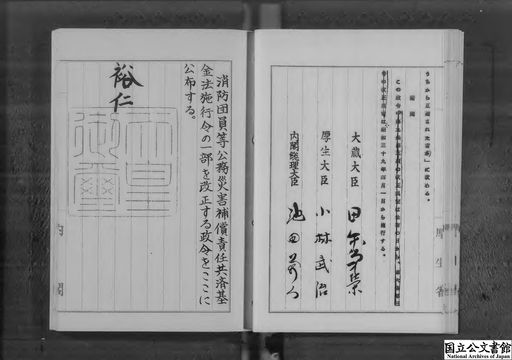 附則
昭和三十九年四月一日から施行する。
大蔵大臣 田中角榮
厚生大臣 小林武治
内閣総理大臣 池田勇人
消防団員等公務災害補償責任共済基
金法施行令の一部を改正する政令をここに
公布する。
裕仁
天皇
御璽
内閣
国立公文書館
National Archives of Japan